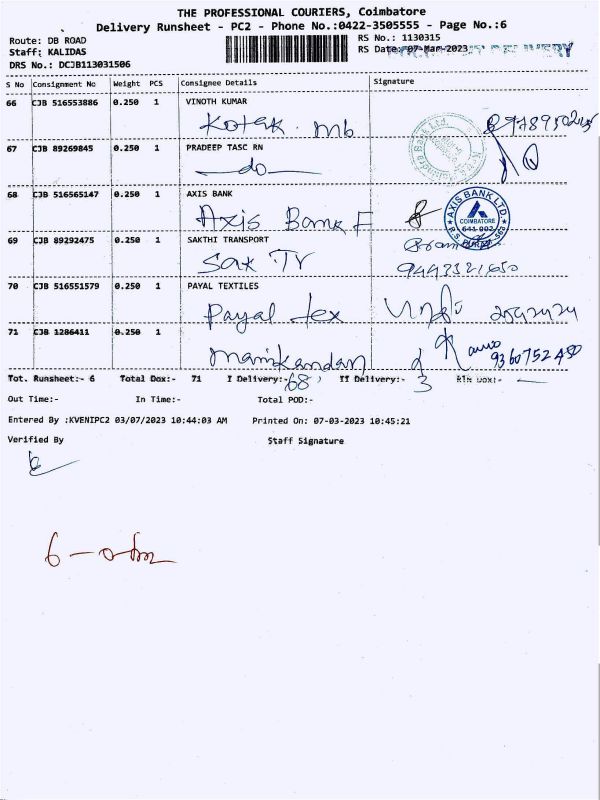 THE PROFESSIONAL COURIERS, Coimbatore
Delivery Runsheet - PC2 - Phone No.:0422-3505555 - Page No.:6
Route: DB ROAD
RS No.: 1130315
Staff: KALIDAS
RS Date: 07-Mar-2023
DRS No.: DCJB113031506
S No Consignment No Weight PCS Consignee Details Signature
66 CJB 516553886 0.250 1 VINOTH KUMAR
Kotak mb
67 CJB 89269845 0.250 1 PRADEEP TASC RN
do
68 CJB 516565147 0.250 1 AXIS BANK
Axis Bank F
AXIS BANK LTD.
COIMBATORE
641 002
69 CJB 89292475 0.250 1 SAKTHI TRANSPORT
Sak Tr
9443321650
70 CJB 516551579 0.250 1 PAYAL TEXTILES
Payal tex
71 CJB 1286411 0.250 1
Manikandan
9360752450
Tot. Runsheet:- 6 Total Dox:- 71 I Delivery:- 68 II Delivery:- 3 Rtn Dox:-
Out Time:- In Time:- Total POD:-
Entered By :KVENIPC2 03/07/2023 10:44:03 AM Printed On: 07-03-2023 10:45:21
Verified By Staff Signature